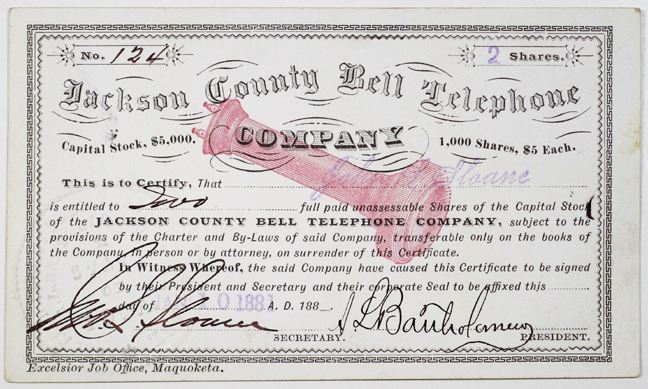 No. 124
2 Shares.
Jackson County Bell Telephone
COMPANY
Capital Stock, $5,000.
1,000 Shares, $5 Each.
This is to Certify, That John Sloane
is entitled to Two full paid unassessable Shares of the Capital Stock
of the JACKSON COUNTY BELL TELEPHONE COMPANY, subject to the
provisions of the Charter and By-Laws of said Company, transferable only on the books of
the Company, in person or by attorney, on surrender of this Certificate.
In Witness Whereof, the said Company have caused this Certificate to be signed
by their President and Secretary and their corporate Seal to be affixed this
day of 1881 A. D. 188 .
Sloane
Bartholomew
SECRETARY.
PRESIDENT.
Excelsior Job Office, Maquoketa.